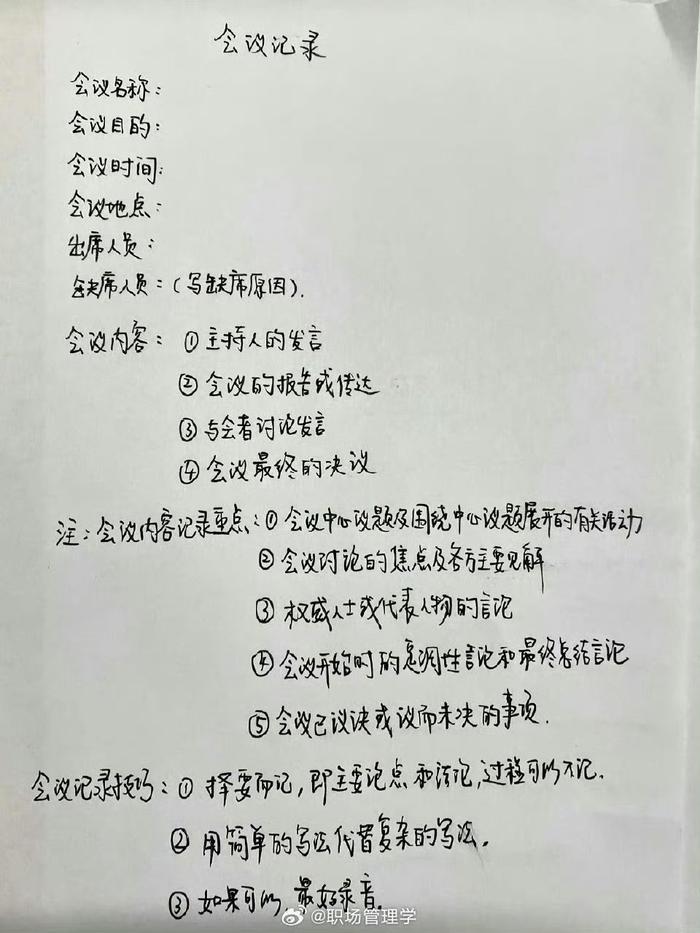 会议记录
会议名称：
会议目的：
会议时间：
会议地点：
出席人员：
缺席人员：（写缺席原因）.
会议内容：①主持人的发言
②会议的报告或传达
③与会者讨论发言
④会议最终的决议
注：会议内容记录重点：①会议中心议题及围绕中心议题展开的有关活动
②会议讨论的焦点及各方主要见解
③权威人士或代表人物的言论
④会议开始时的定调性言论和最终总结言论
⑤会议已议决或议而未决的事项.
会议记录技巧：①择要而记，即主要论点和结论，过程可以不记.
②用简单的写法代替复杂的写法.
③如果可以 最好录音.
@职场管理学